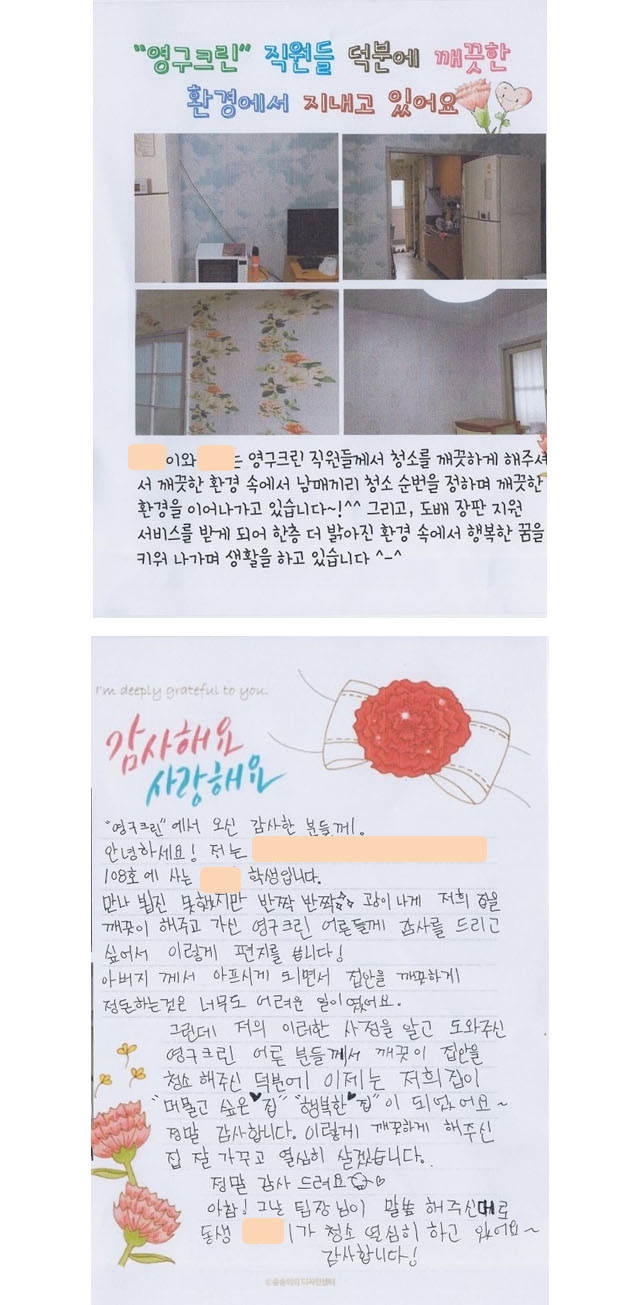 "영구크린" 직원들 덕분에 깨끗한
환경에서 지내고 있어요
이와 는 영구크린 직원들께서 청소를 깨끗하게 해주셔
서 깨끗한 환경 속에서 남매끼리 청소 순번을 정하며 깨끗한
환경을 이어나가고 있습니다~!^^ 그리고, 도배 장판 지원
서비스를 받게 되어 한층 더 밝아진 환경 속에서 행복한 꿈을
키워 나가며 생활을 하고 있습니다 ^-^
I'm deeply grateful to you.
감사해요
사랑해요
"영구크린"에서 오신 감사한 분들께.
안녕하세요! 저는
108호에 사는 학생입니다.
만나 뵙진 못했지만 반짝 반짝 광이나게 저희 집을
깨끗이 해주고 가신 영구크린 어른들께 감사를 드리고
싶어서 이렇게 편지를 씁니다!
아버지 께서 아프시게 되면서 집안을 깨끗하게
정돈하는것은 너무도 어려운 일이였어요.
그런데 저의 이러한 사정을 알고 도와주신
영구크린 어른 분들께서 깨끗이 집안을
청소 해주신 덕분에 이제는 저희집이
"머물고 싶은♥집" "행복한♥집"이 되었어요~
정말 감사합니다. 이렇게 깨끗하게 해주신
집 잘 가꾸고 열심히 살겠습니다.
정말 감사 드려요
아참! 그날 팀장님이 말씀 해주신대로
동생 가 청소 열심히 하고 있어요~
감사합니다!
©송송이의 디자인샘터